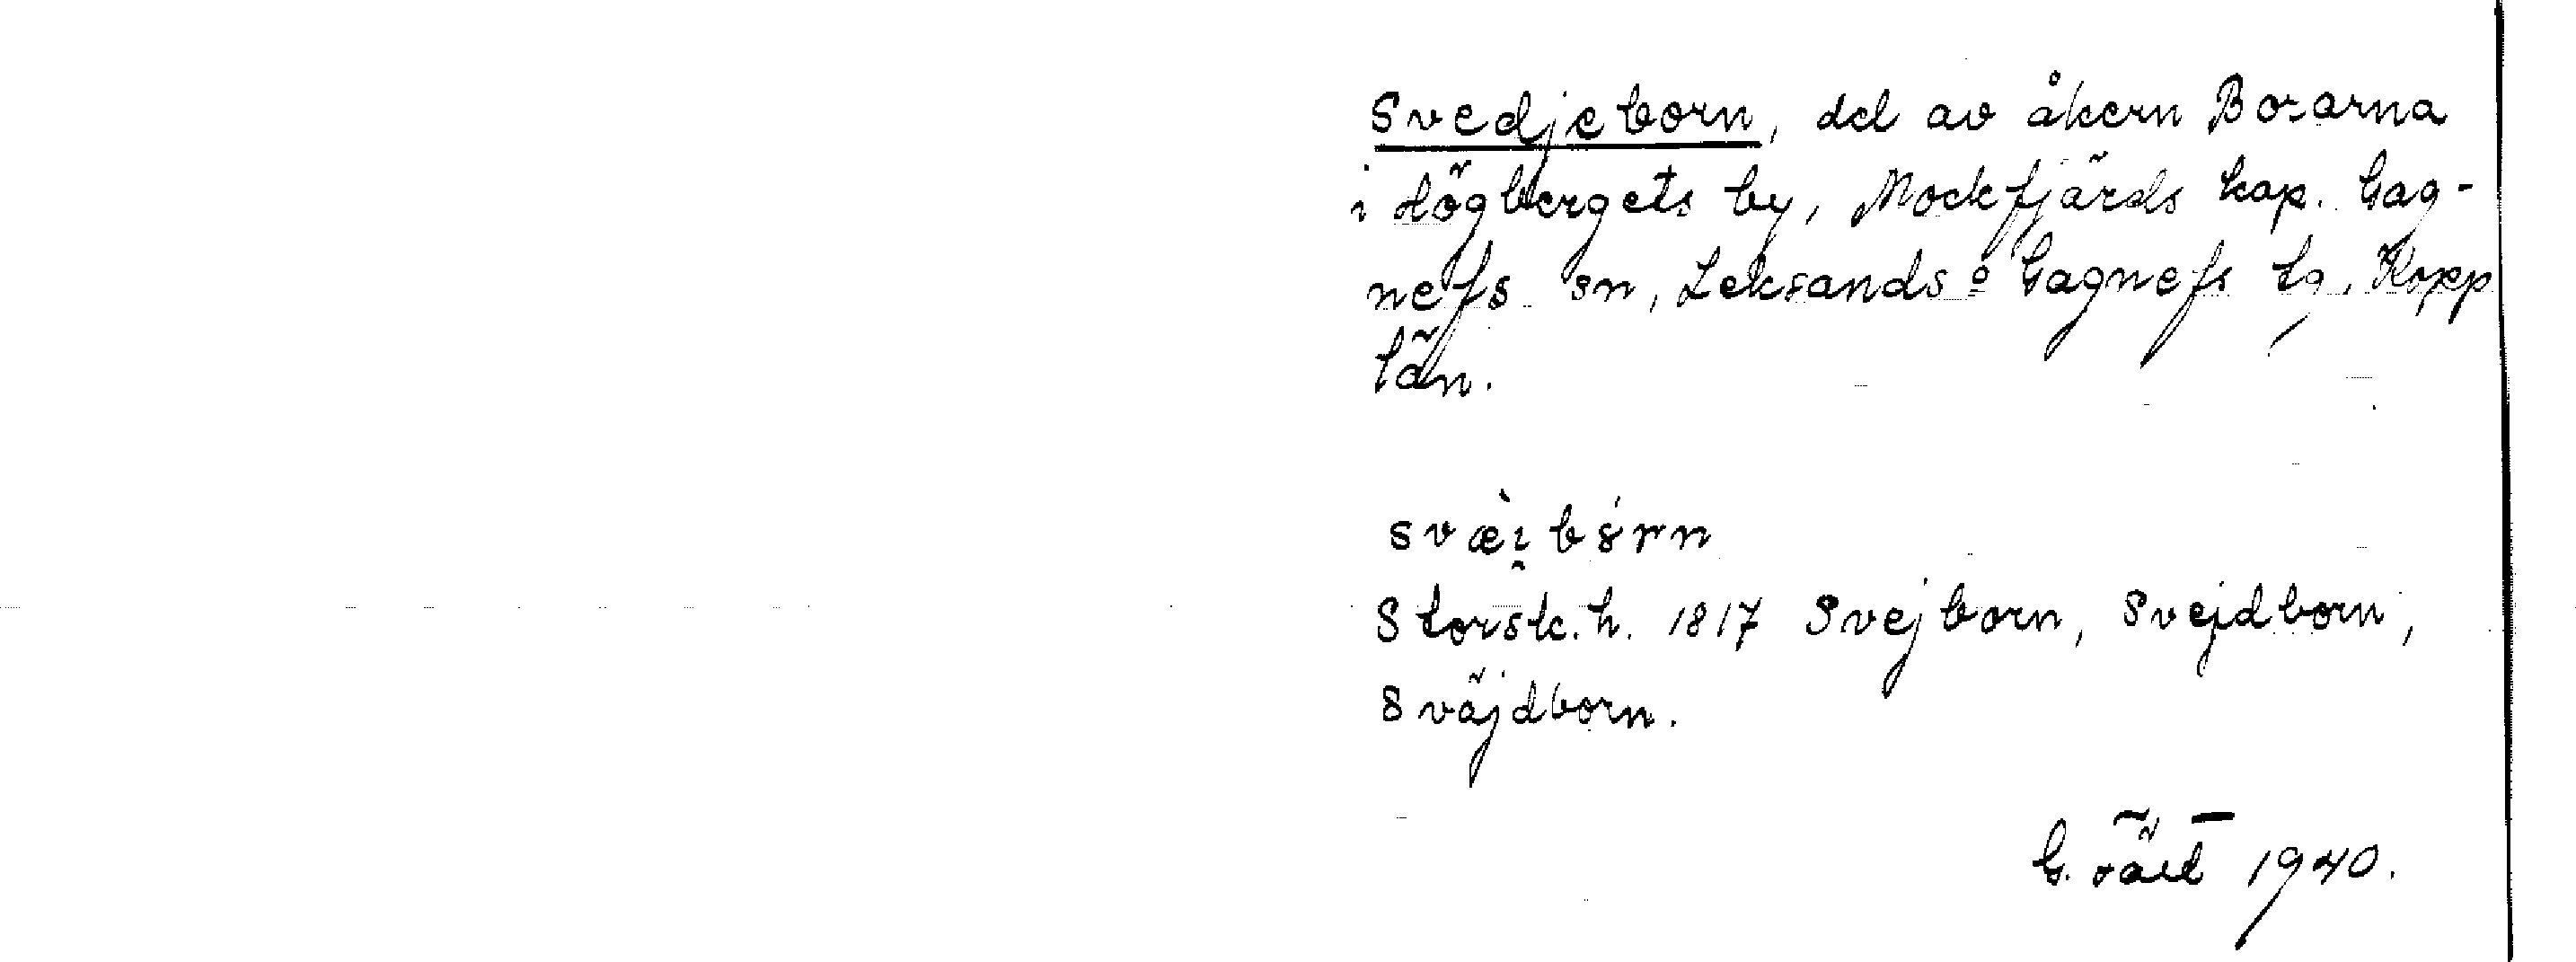 Svedjeborn, del av åkern Borarna
i Högbergets by, Mockfjärds kap. Gag-
nefs sn, Leksands o Gagnefs tg, Kopp
län.
svæ̀i̯bó̤rn
Storsk.h. 1817 Svejborn, Svejdborn,
Sväjdborn.
G. 1940.